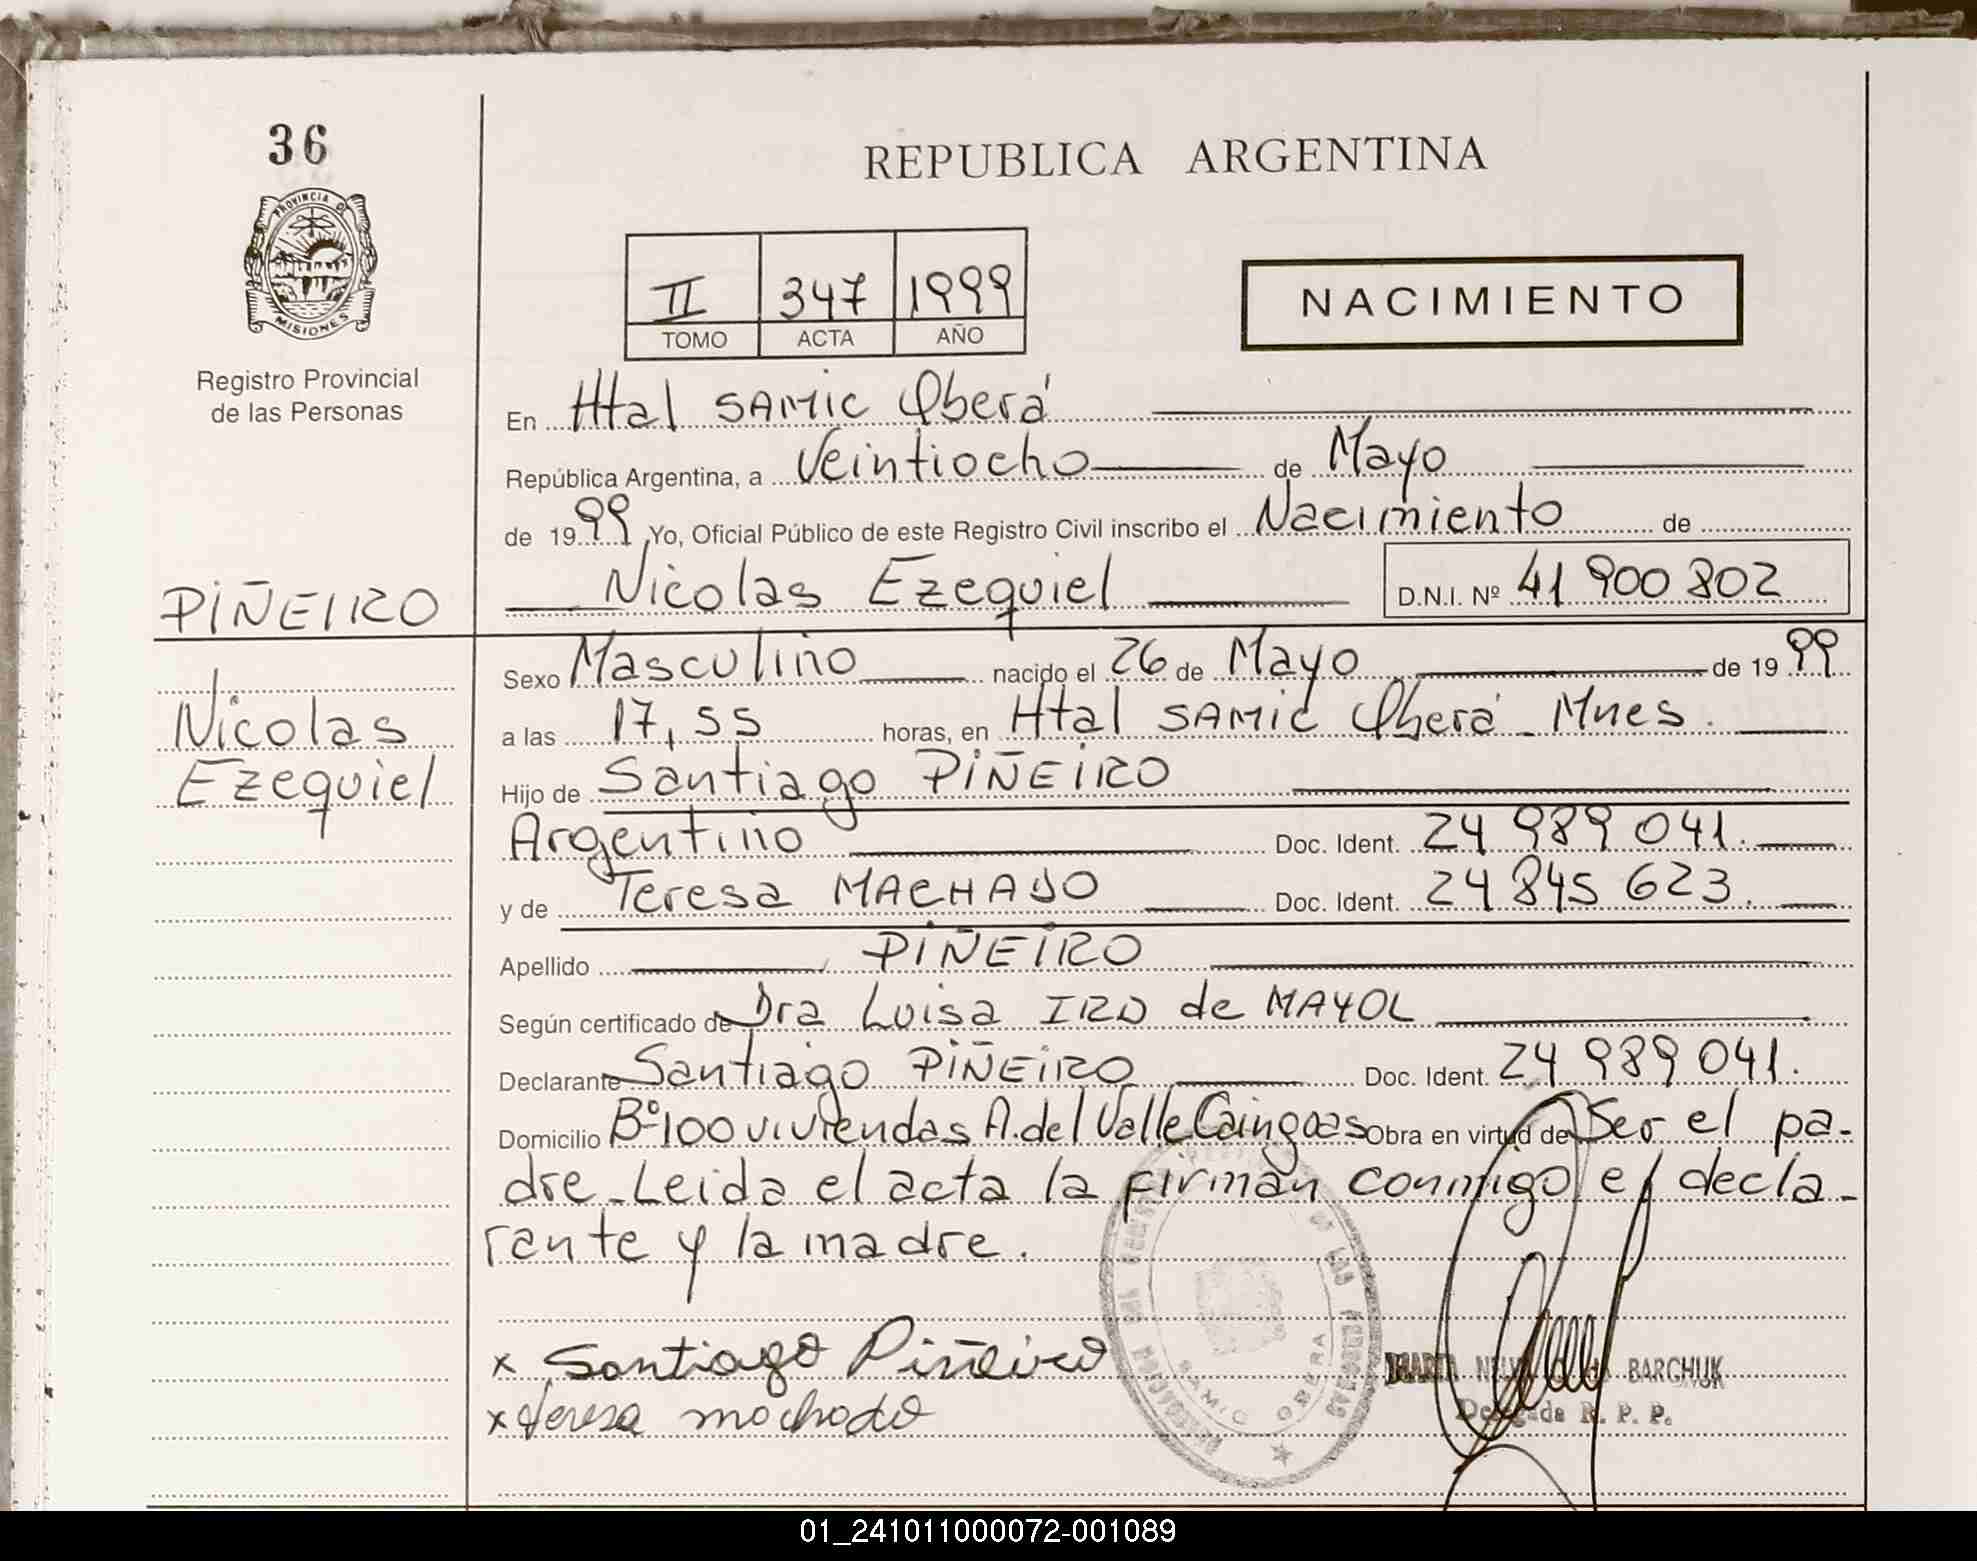 36
REPUBLICA ARGENTINA
PROVINCIA DE
MISIONES
Registro Provincial
de las Personas
II 347 1999
TOMO ACTA AÑO
NACIMIENTO
En Htal SAMIC Oberá
República Argentina, a Veintiocho de Mayo
de 1999 Yo, Oficial Público de este Registro Civil inscribo el Nacimiento de
Nicolas Ezequiel D.N.I. Nº 41 900 802
PIÑEIRO
Nicolas
Ezequiel
Sexo Masculino nacido el 26 de Mayo de 1999
a las 17,55 horas, en Htal SAMIC Oberá - Mnes.
Hijo de Santiago PIÑEIRO
Argentino Doc. Ident. 24 989 041.
y de Teresa MACHADO Doc. Ident. 24 845 623.
Apellido PIÑEIRO
Según certificado de Dra Luisa IRO de MAYOL
Declarante Santiago PIÑEIRO Doc. Ident. 24 989 041.
Domicilio Bº 100 viviendas A. del Valle Caingoas Obra en virtud de Ser el pa-
dre - Leida el acta la firman conmigo el decla-
rante y la madre.
x Santiago Piñeiro
x teresa machado
SAMIC OBERA
BARCHUK
Delegada R. P. P.
01_241011000072-001089